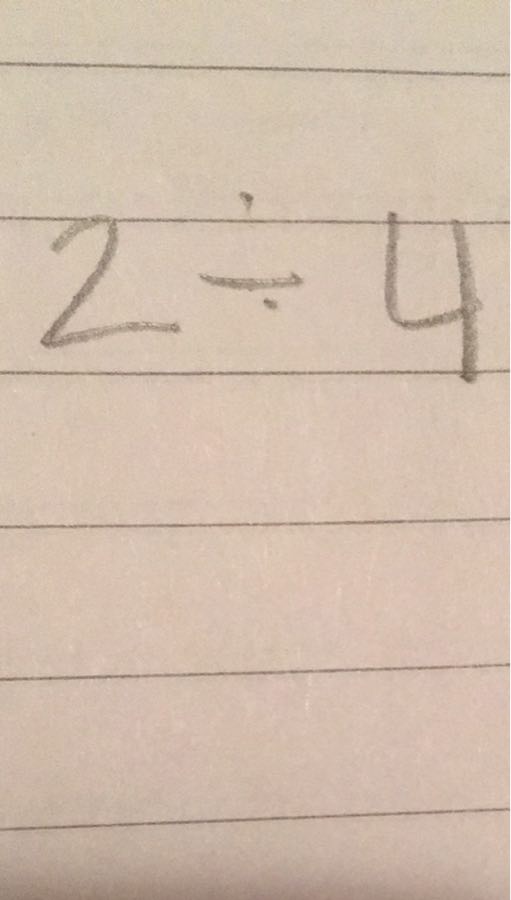 2 ÷ 4